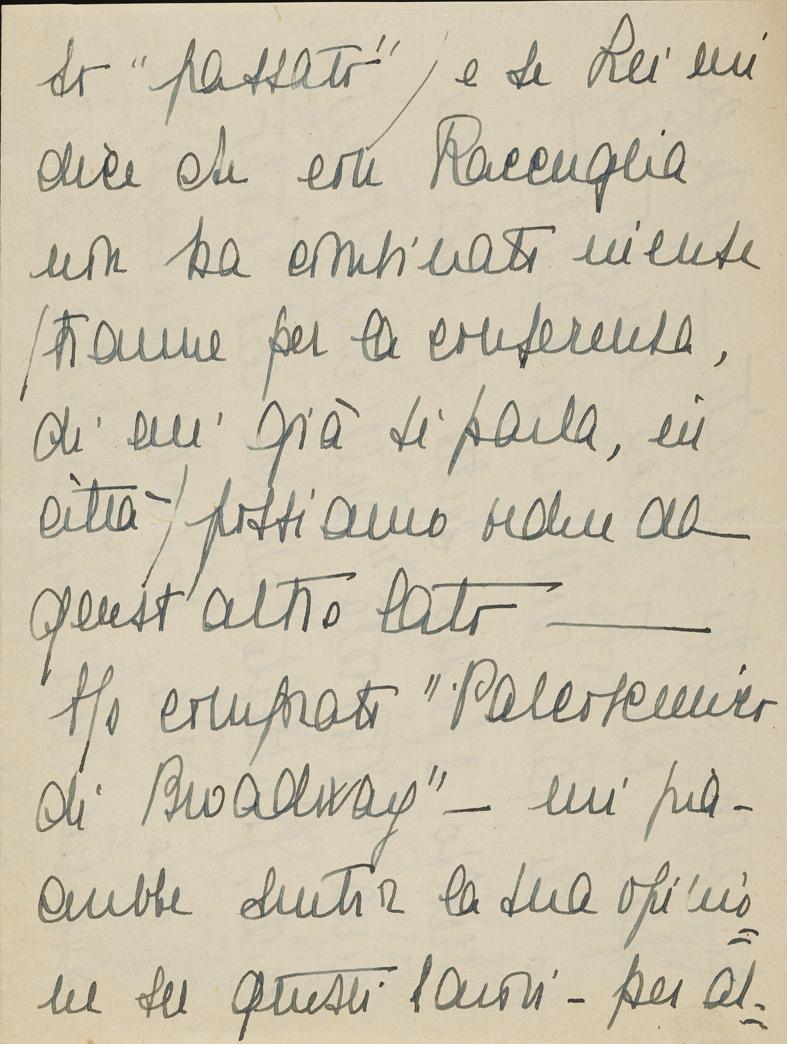 so "passato") e se Lei mi
dice che con Raccuglia
non ha combinato niente
(tranne per la conferenza,
di cui già si parla, in
città) possiamo vedere da
quest'altro lato ———
Ho comprato "Palcoscenico
di Broadway" – mi pia-
cerebbe sentir la sua opinio
ne su questi lavori – per al-